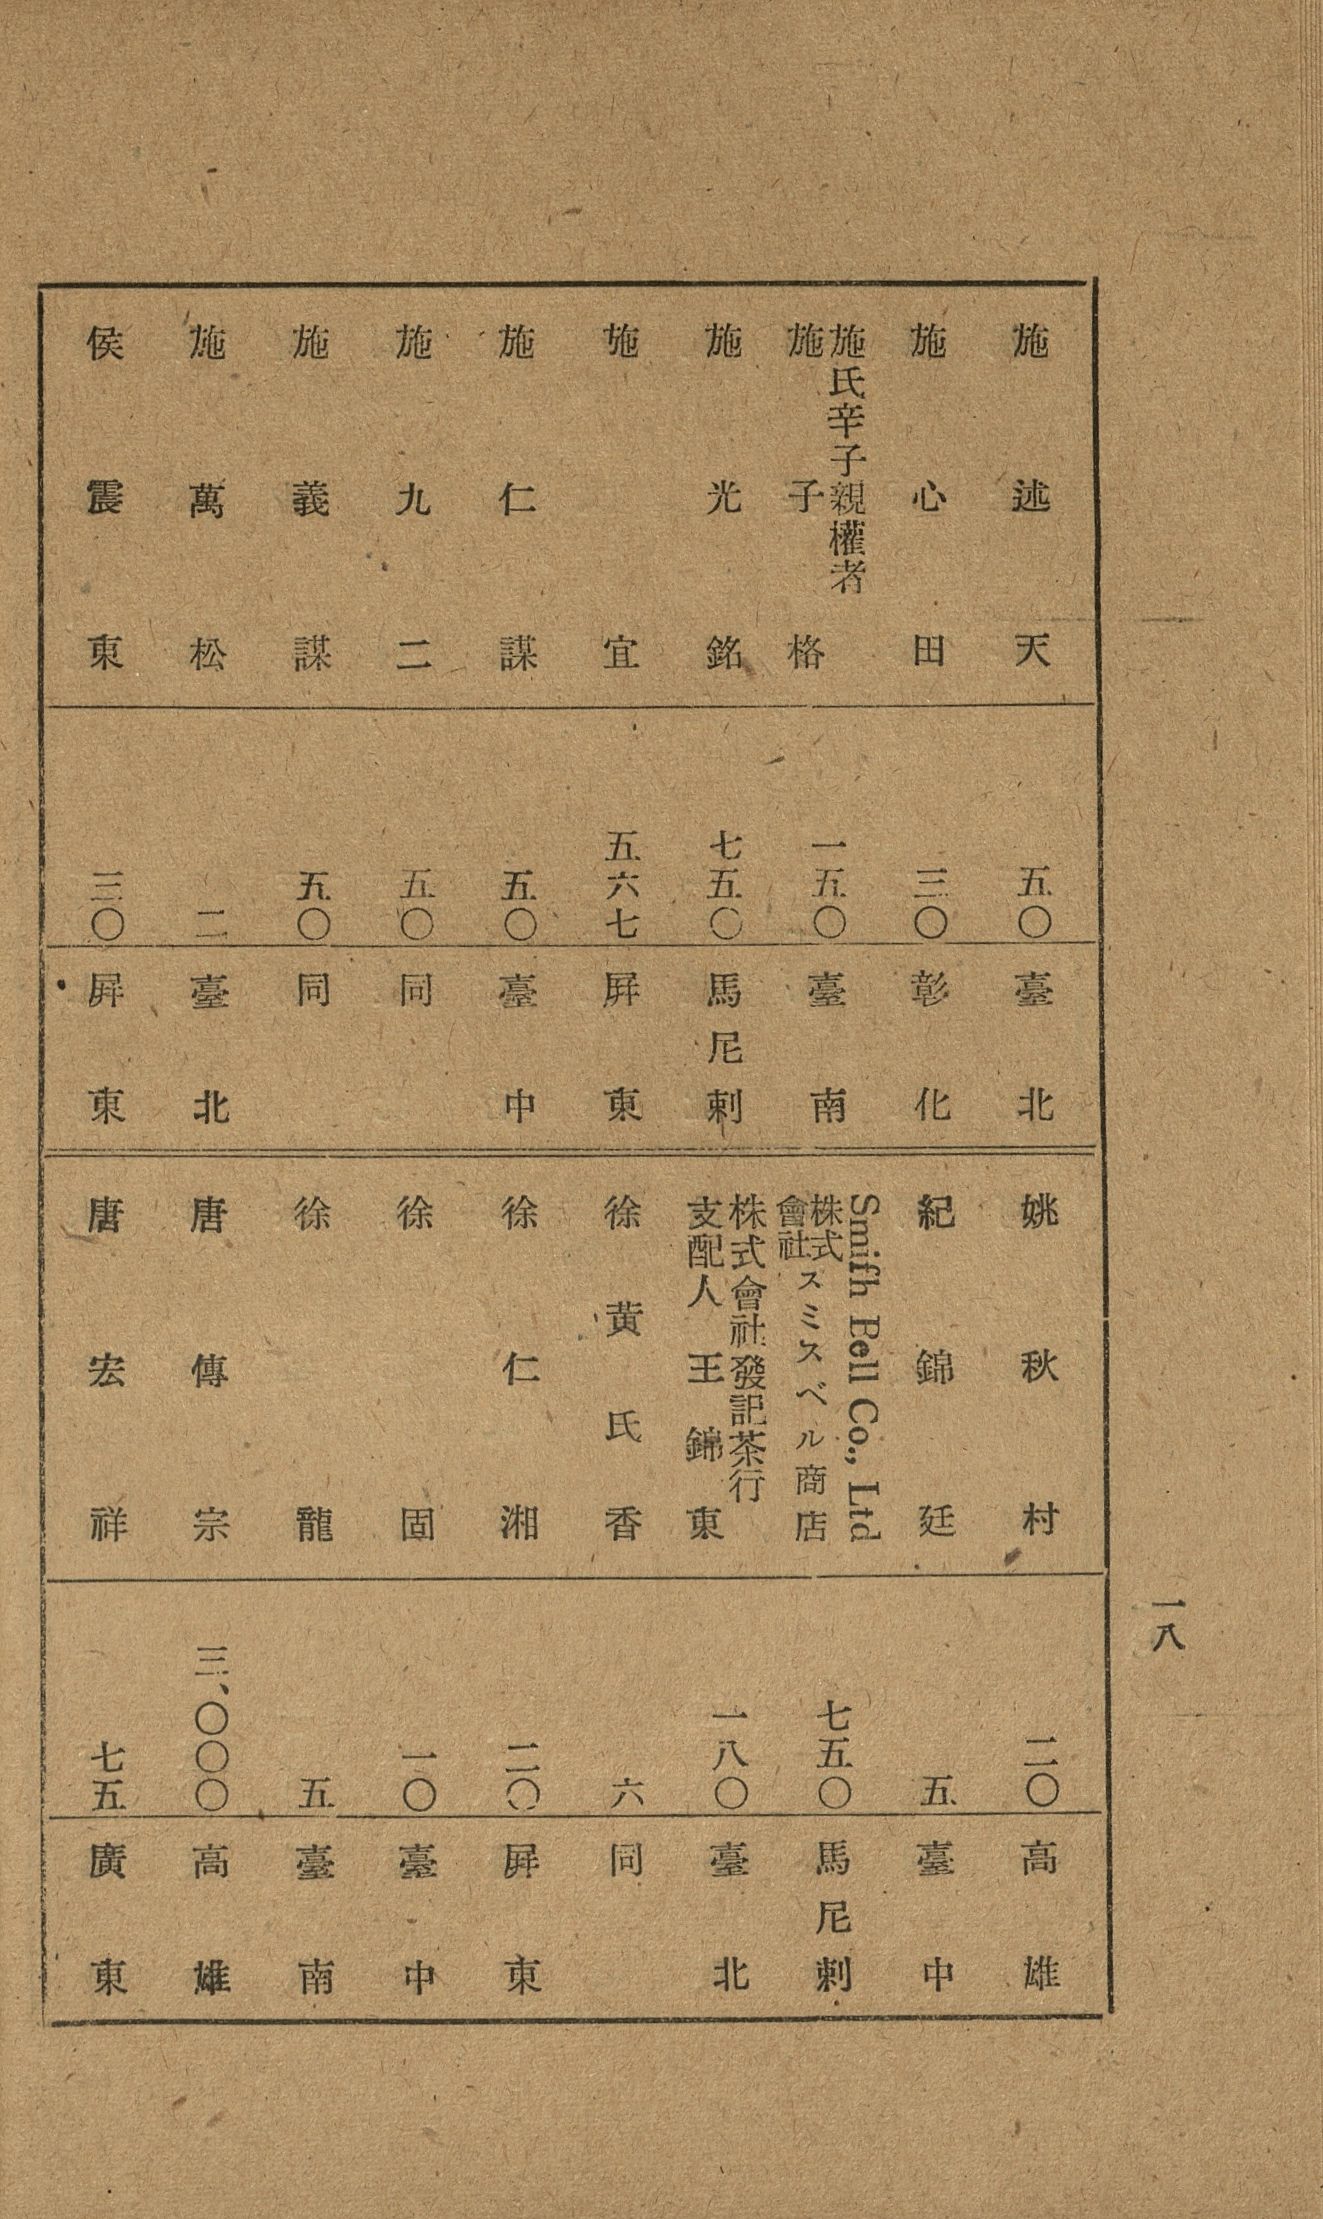 一八
施述天 五〇 臺北
施心田 三〇 彰化
施氏辛子親權者
施子格 一五〇 臺南
施光銘 七五〇 馬尼剌
施宜 五六七 屏東
施仁謀 五〇 臺中
施九二 五〇 同
施義謀 五〇 同
施萬松 二 臺北
侯震東 三〇 屏東
姚秋村 二〇 高雄
紀錦廷 五 臺中
Smifh Bell Co., Ltd
株式會社スミスベル商店 七五〇 馬尼剌
株式會社發記茶行
支配人王錦東 一八〇 臺北
徐黄氏香 六 同
徐仁湘 二〇 屏東
徐固 一〇 臺中
徐龍 五 臺南
唐傳宗 三、〇〇〇 高雄
唐宏祥 七五 廣東